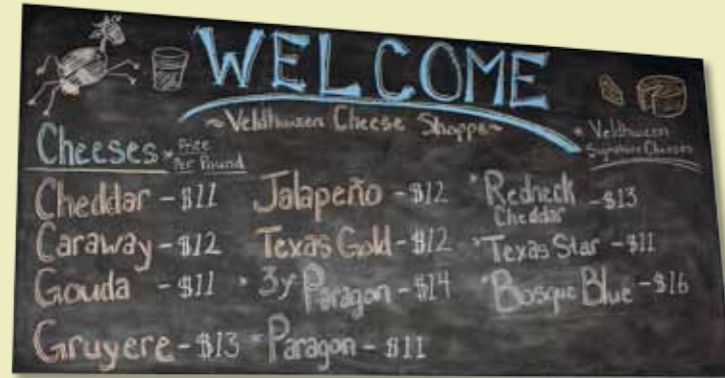 WELCOME
~Veldhuizen Cheese Shoppe~
* Veldhuizen
Signature Cheeses
Cheeses * Price
Per Pound
Cheddar - $11
Caraway - $12
Gouda - $11
Gruyere - $13
Jalapeño - $12
Texas Gold - $12
* 3y Paragon - $14
* Paragon - $11
* Redneck
Cheddar - $13
* Texas Star - $11
* Bosque Blue - $16